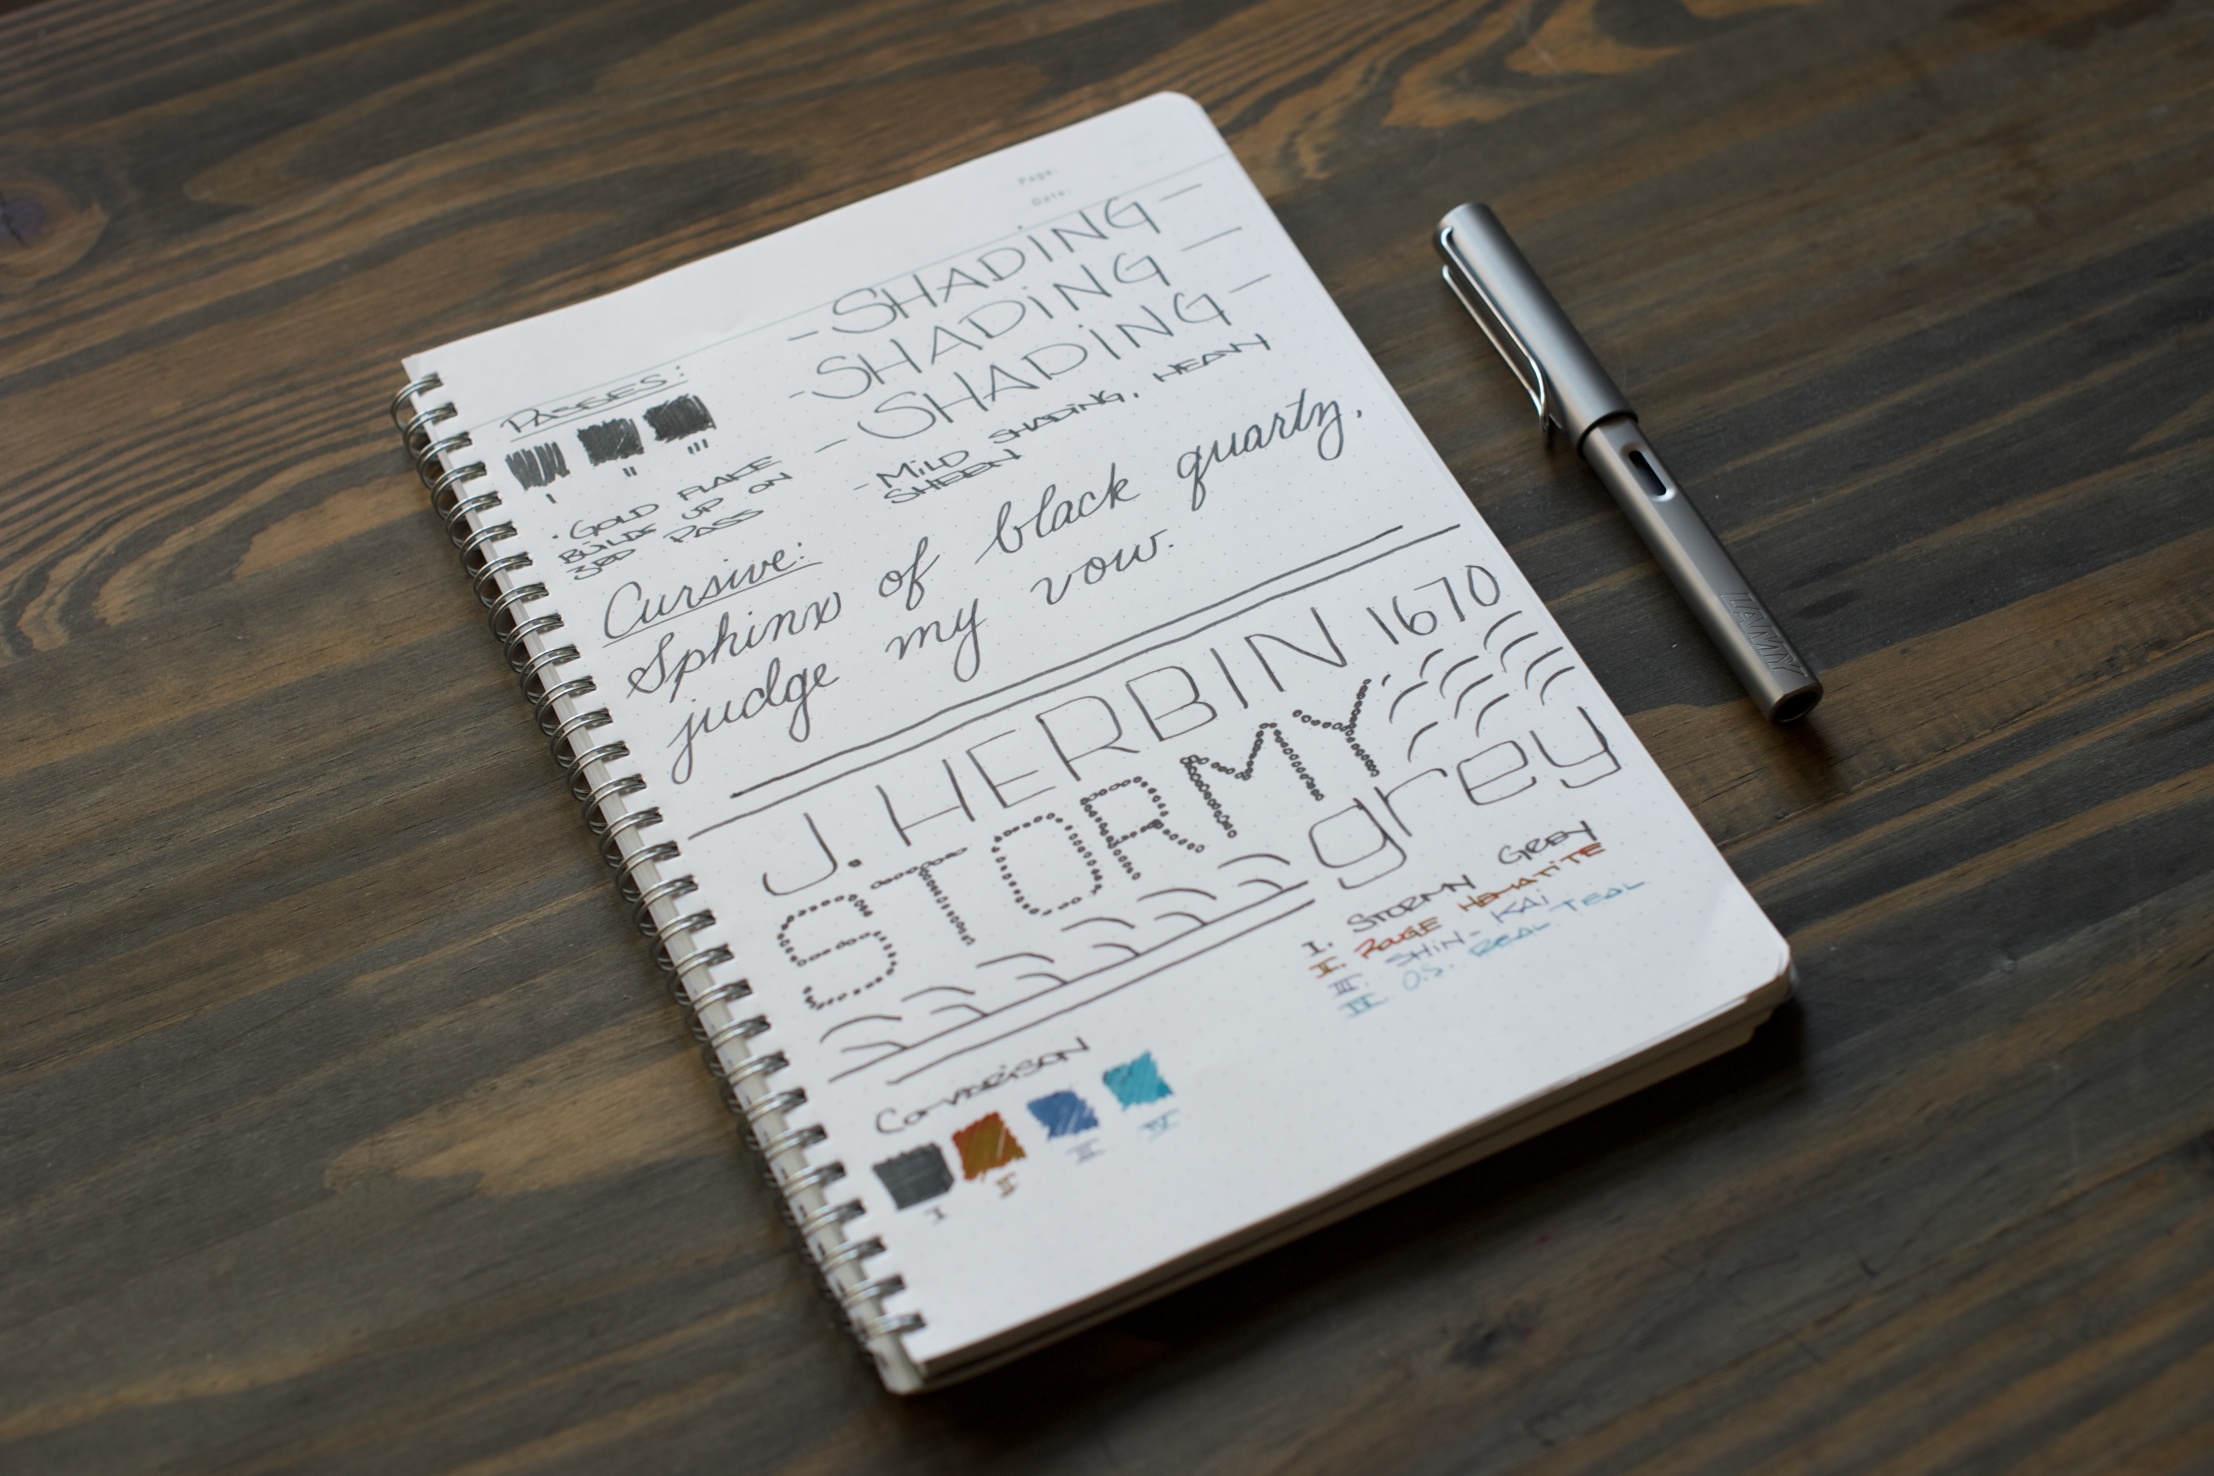 Page:
Date:
- SHADING -
- SHADING -
- SHADING -
- MILD SHADING, HEAVY
SHEEN
PASSES:
I II III
· GOLD FLAKE
BUILDS UP ON
3RD PASS
Cursive:
Sphinx of black quartz,
judge my vow.
J. HERBIN 1670
STORMY
grey
I. STORMY GREY
II. ROUGE HEMATITE
III. SHIN-KAI
IV. O.S. REAL TEAL
COMPARISON
I II III IV
LAMY